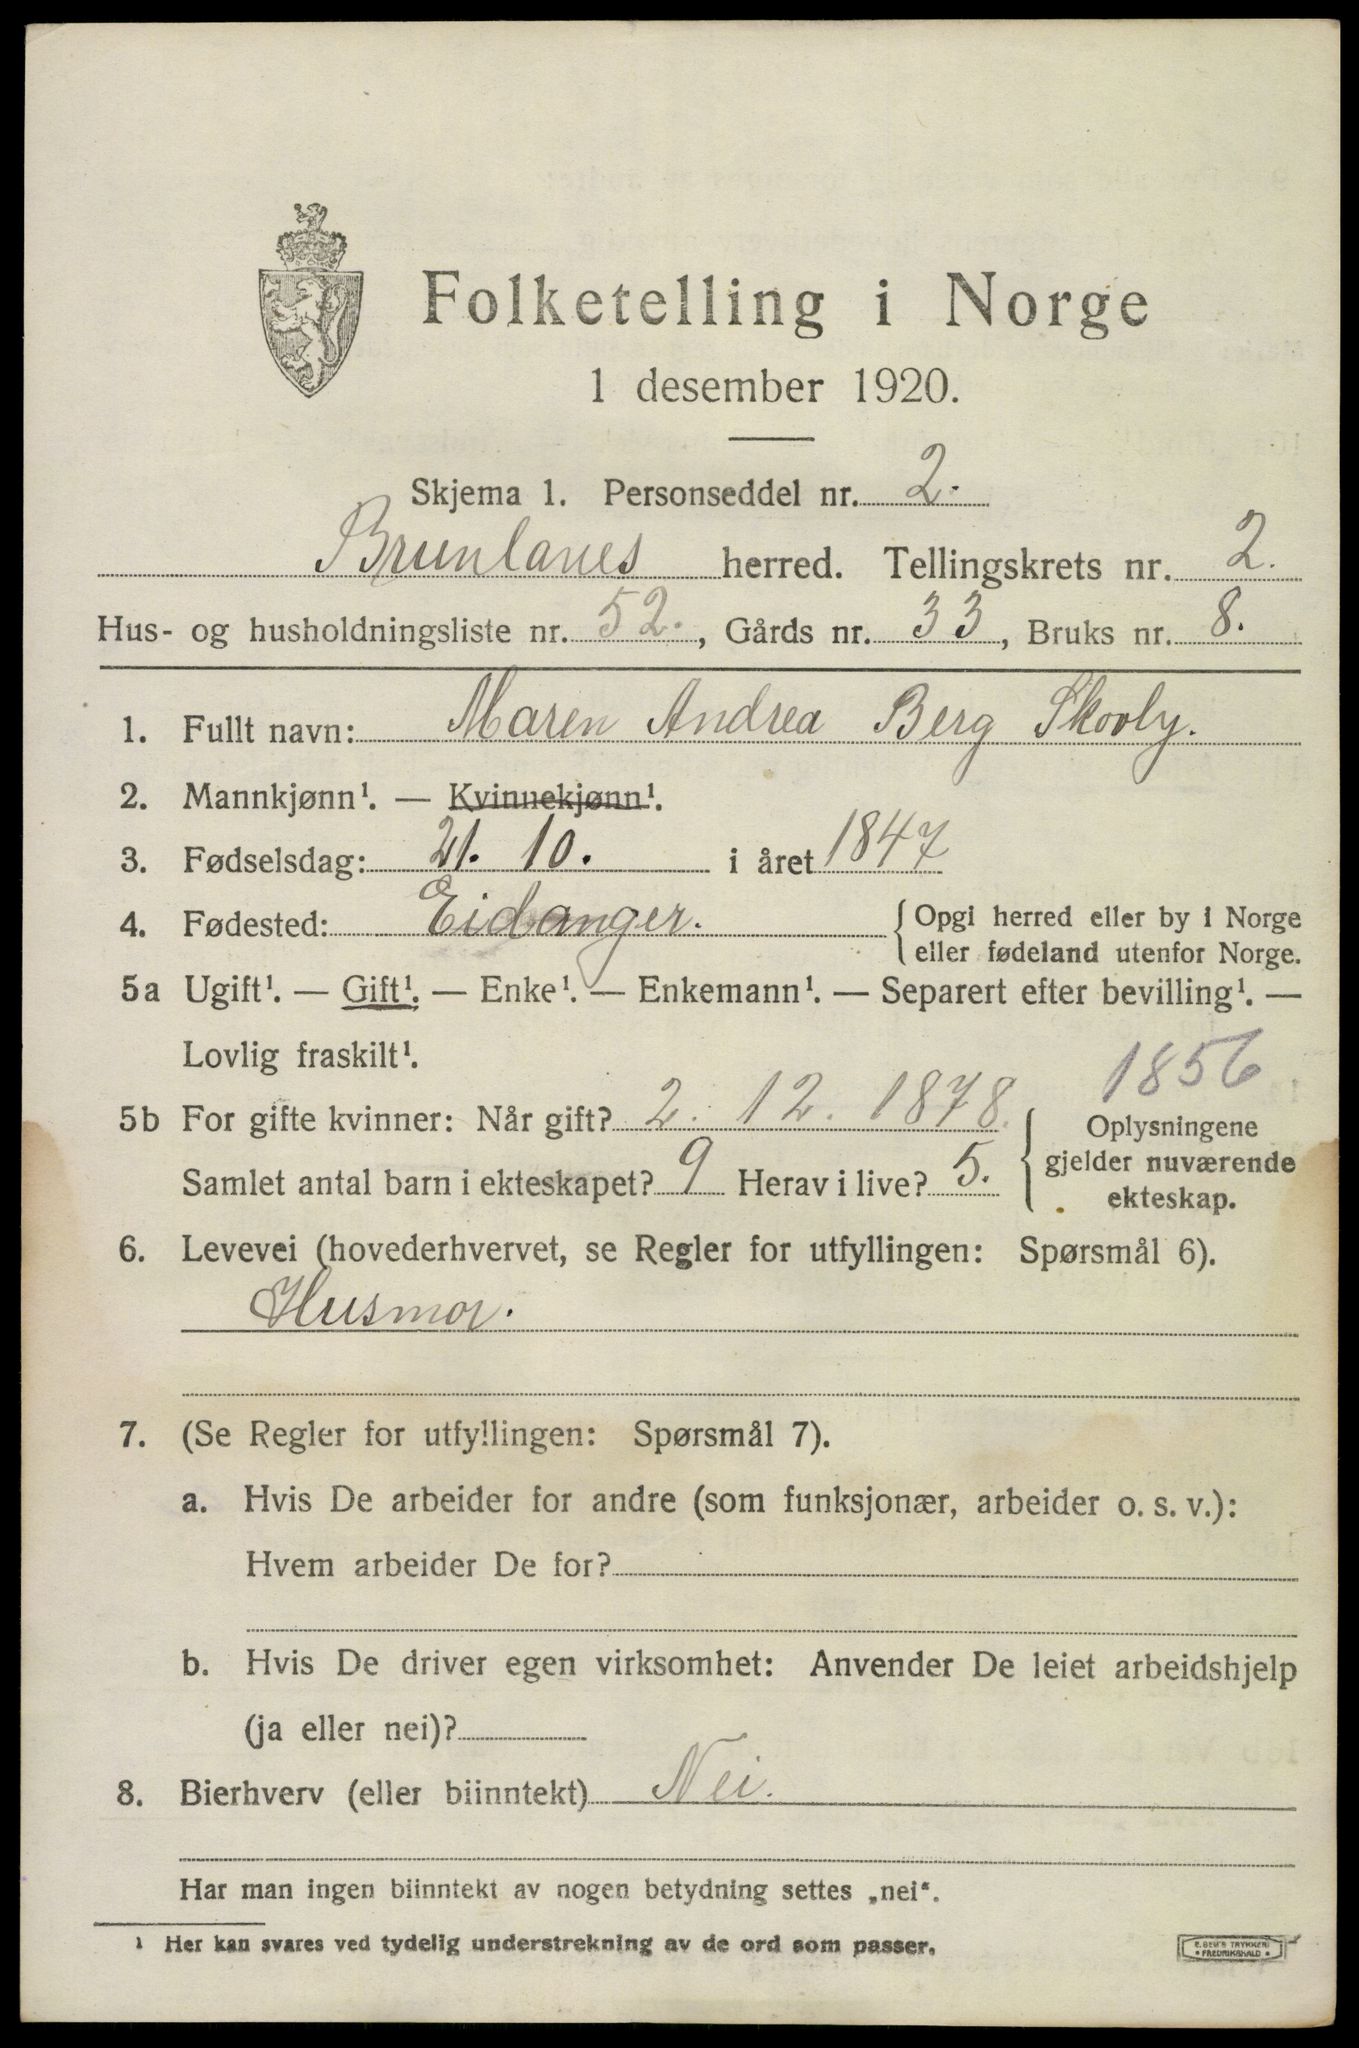 Folketelling i Norge
1 desember 1920.
Skjema 1. Personseddel nr. 2.
Brunlanes herred. Tellingskrets nr. 2.
Hus- og husholdningsliste nr. 52., Gårds nr. 33, Bruks nr. 8.
1. Fullt navn: Maren Andrea Berg Skovly.
2. Mannkjønn¹. — Kvinnekjønn¹.
3. Fødselsdag: 21. 10. i året 1847
4. Fødested: Eidanger. { Opgi herred eller by i Norge
eller fødeland utenfor Norge.
5a Ugift¹. — Gift¹. — Enke¹. — Enkemann¹. — Separert efter bevilling¹. —
Lovlig fraskilt¹.
1856
5b For gifte kvinner: Når gift? 2. 12. 1878. { Oplysningene
gjelder nuværende
ekteskap.
Samlet antal barn i ekteskapet? 9 Herav i live? 5.
6. Levevei (hovederhvervet, se Regler for utfyllingen: Spørsmål 6).
Husmor.
7. (Se Regler for utfyllingen: Spørsmål 7).
a. Hvis De arbeider for andre (som funksjonær, arbeider o. s. v.):
Hvem arbeider De for?
b. Hvis De driver egen virksomhet: Anvender De leiet arbeidshjelp
(ja eller nei)?
8. Bierhverv (eller biinntekt) Nei.
Har man ingen biinntekt av nogen betydning settes „nei“.
¹ Her kan svares ved tydelig understrekning av de ord som passer.
E. SEM'S TRYKKERI
• FREDRIKSHALD •